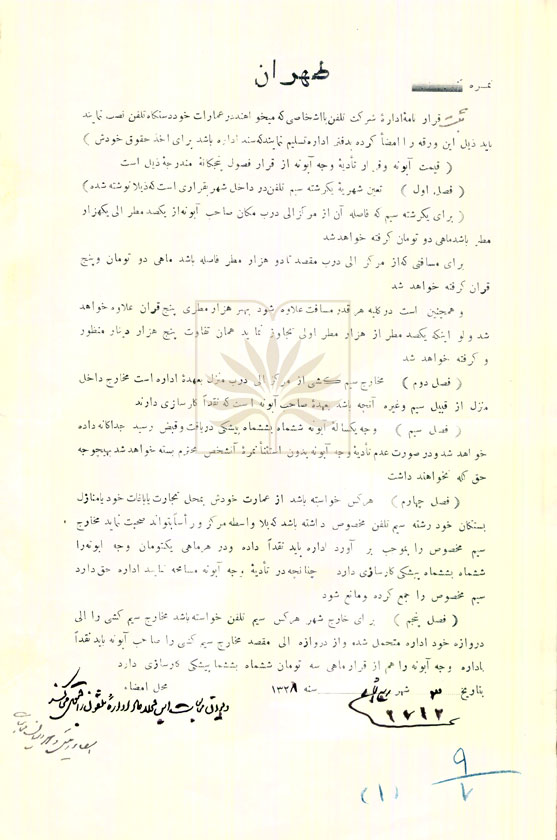 طهران
نمره
قرار نامهٔ ادارهٔ شرکت تلفن با اشخاصی که میخواهند در عمارات خود دستگاه تلفن نصب نمایند
باید ذیل این ورقه را امضأ کرده بدفتر اداره تسلیم نمایند که سند اداره باشد برای اخذ حقوق خودش )
( قیمت آبونه و قرار تأدیهٔ وجه آبونه از قرار فصول پنجگانهٔ مندرجهٔ ذیل است
( فصل اول ) تعین شهریهٔ یکرشته سیم تلفن در داخل شهر بقراری است که ذیلا نوشته شده )
( برای یکرشته سیم که فاصله آن از مرکز الی درب مکان صاحب آبونه از یکصد مطر الی یکهزار
مطر باشد ماهی دو تومان گرفته خواهد شد
برای مسافتی که از مرکز الی درب مقصد تا دو هزار مطر فاصله باشد ماهی دو تومان وپنج
قران گرفته خواهد شد
و همچنین است در کلیه هر قدر مسافت علاوه شود بهر هزار مطری پنج قران علاوه خواهد
شد و لو اینکه یکصد مطر از هزار مطر اولی تجاوز نماید همان تفاوت پنج هزار دینار منظور
و گرفته خواهد شد
( فصل دوم ) مخارج سیم کشی از مرکز الی درب منزل بعهدهٔ اداره است مخارج داخل
منزل از قبیل سیم وغیره آنچه باشد بعهدهٔ صاحب آبونه است که نقداً کارسازی دارند
( فصل سیم ) وجه یکسالهٔ آبونه ششماه بششماه پیشکی دریافت و قبض رسید جداگانه داده
خواهد شد و در صورت عدم تأدیهٔ وجه آبونه بدون استثنأ نمرهٔ آنشخص محترم بسته خواهد شد بهیچوجه
حق گله نخواهند داشت
( فصل چهارم ) هرکس خواسته باشد از عمارت خودش بمحل تجارت یا باغات خود یا منازل
بستگان خود رشته سیم تلفن مخصوص داشته باشد که بلا واسطه مرکز و رأساً بتواند صحبت نماید مخارج
سیم مخصوص را بموجب بر آورد اداره باید نقداً داده ودر هرماهی یکتومان وجه ابونه را
ششماه بششماه پیشکی کارسازی دارد چنانچه در تأدیهٔ وجه آبونه مسامحه نمایند اداره حق دارد
سیم مخصوص را جمع کرده ومانع شود
( فصل پنجم ) برای خارج شهر هرکس سیم تلفن خواسته باشد مخارج سیم کشی را الی
دروازه خود اداره متحمل شده و از دروازه الی مقصد مخارج سیم کشی را صاحب آبونه باید نقداً
باداره وجه آبونه را هم از قرار ماهی سه تومان ششماه بششما پیشکی کارسازی دارد
بتاریخ ۳ شهر سنه ۱۳۲۸ محل امضاء
۶۷۱۲
۹
۷
(۱)